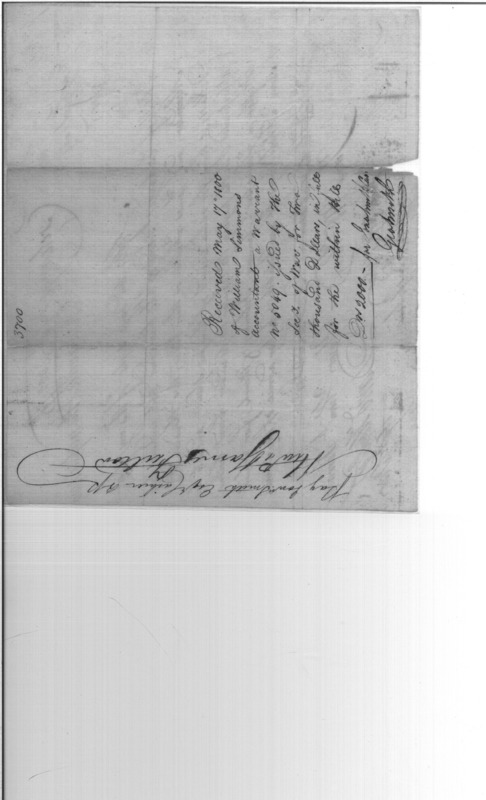 3700
Received May 17th 1800
of William Simmons
accountant a warrant
No 5049. issued by The
Sec.y of War for Two
thousand Dollars, in full
for the within Bill
Drs 2000 - for
Pay Esqr Cashier or
James